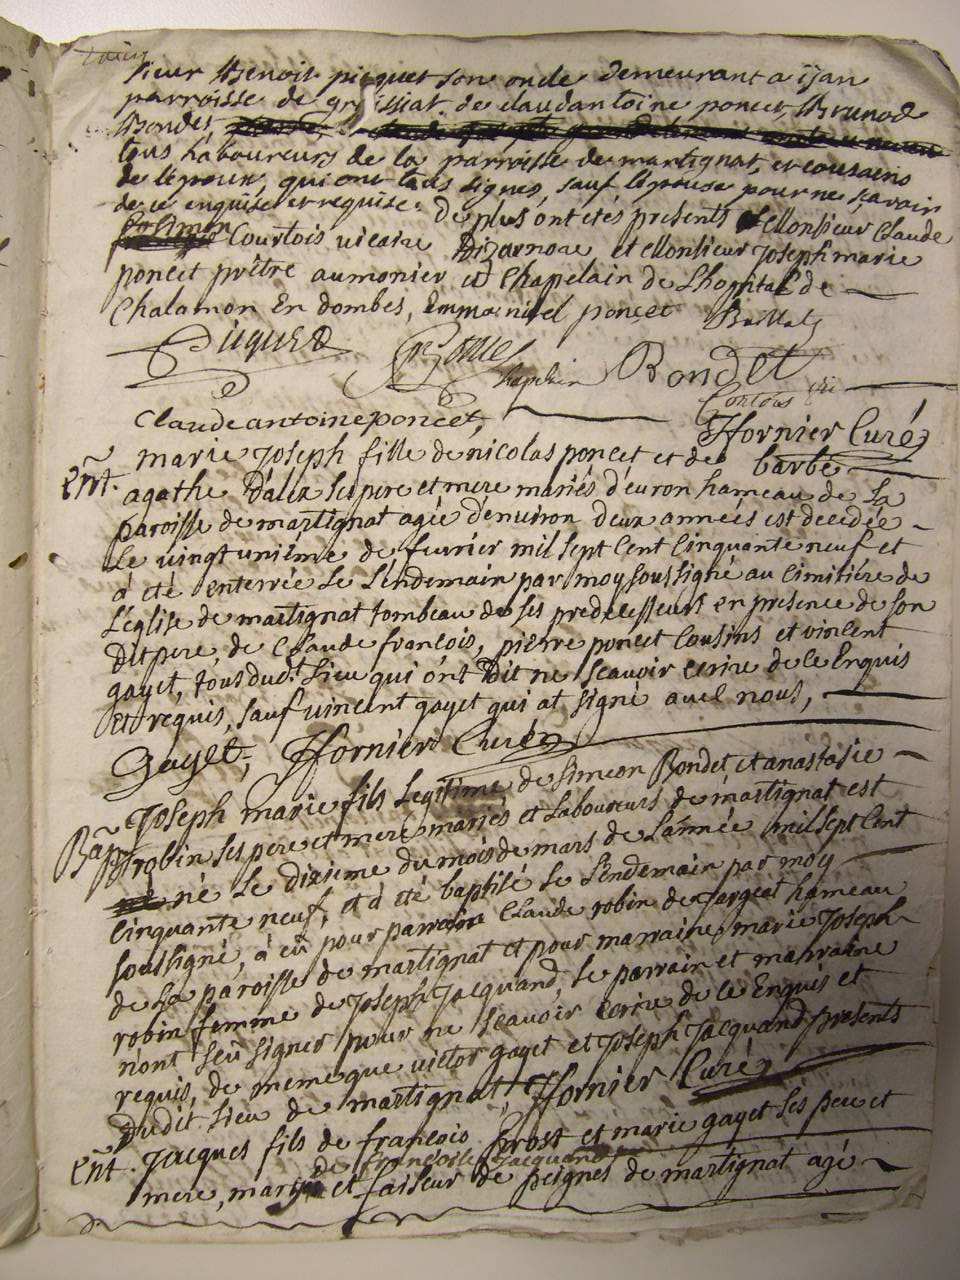 sieur Benoit picquet son oncle demeurant a ijan
parroisse de groissiat, de claudantoine poncet, Bruno de
Bondet,
tous Laboureurs de la parroisse de martignat, et cousins
de l'epoux, qui ont tous signés, sauf l'epouse pour ne sçavoir
de ce enquise et requise. De plus ont etés présents Monsieur Claude
Courtois vicaire Dizernore et Monsieur Joseph marie
poncet prêtre aumonier et Chapelain de L'hopital de
Chalamon En dombes, Emmanuel poncet Baillat
Picquet
Chapelain Bondet
Courtois vic
Claude antoine poncet,
ffornier Curé
Ent. marie Joseph fille de nicolas poncet et de barbe
agathe D'aux ses pere et mere mariés d'evron hameau de La
paroisse de martignat agée d'environ deux années est decedée
Le vingt uniéme de fevrier mil sept Cent Cinquante neuf et
à eté enterrée Le Lendemain par moy soussigné au Cimitiére de
L'église de martignat tombeau de ses predecesseurs en presence de son
dit pere, de Claude françois, pierre poncet Cousins et vincent
gayet, tous dud.t Lieu qui ónt dit ne sçavoir ecrire de ce Enquis
et requis, sauf vincent gayet qui at signé avec nous,
Gayet, ffornier Curé
Bap. Joseph marie fils Legitime de simeon Bondet et anastasie
robin ses pere et mere mariés et Laboureurs de martignat est
né Le dixieme du mois de mars de L'année mil sept Cent
Cinquante neuf, et à été baptisé Le Lendemain par moy
soussigné, à eû pour parrain Claude robin de Jargeat hameau
de La paroisse de martignat et pour marraine marie Joseph
robin femme de Joseph Jacquand, Le parrain et marraine
n'ont sçeu signer pour ne sçavoir ecrire de ce Enquis et
requis, de meme que victor gayet et Joseph Jacquand présents
dudit Lieu de martignat, ffornier Curé
Ent. Jacques fils de françois prost et marie gayet ses pere et
de françoise Jacquand
mere, mariés et faiseur de peignes de martignat agé